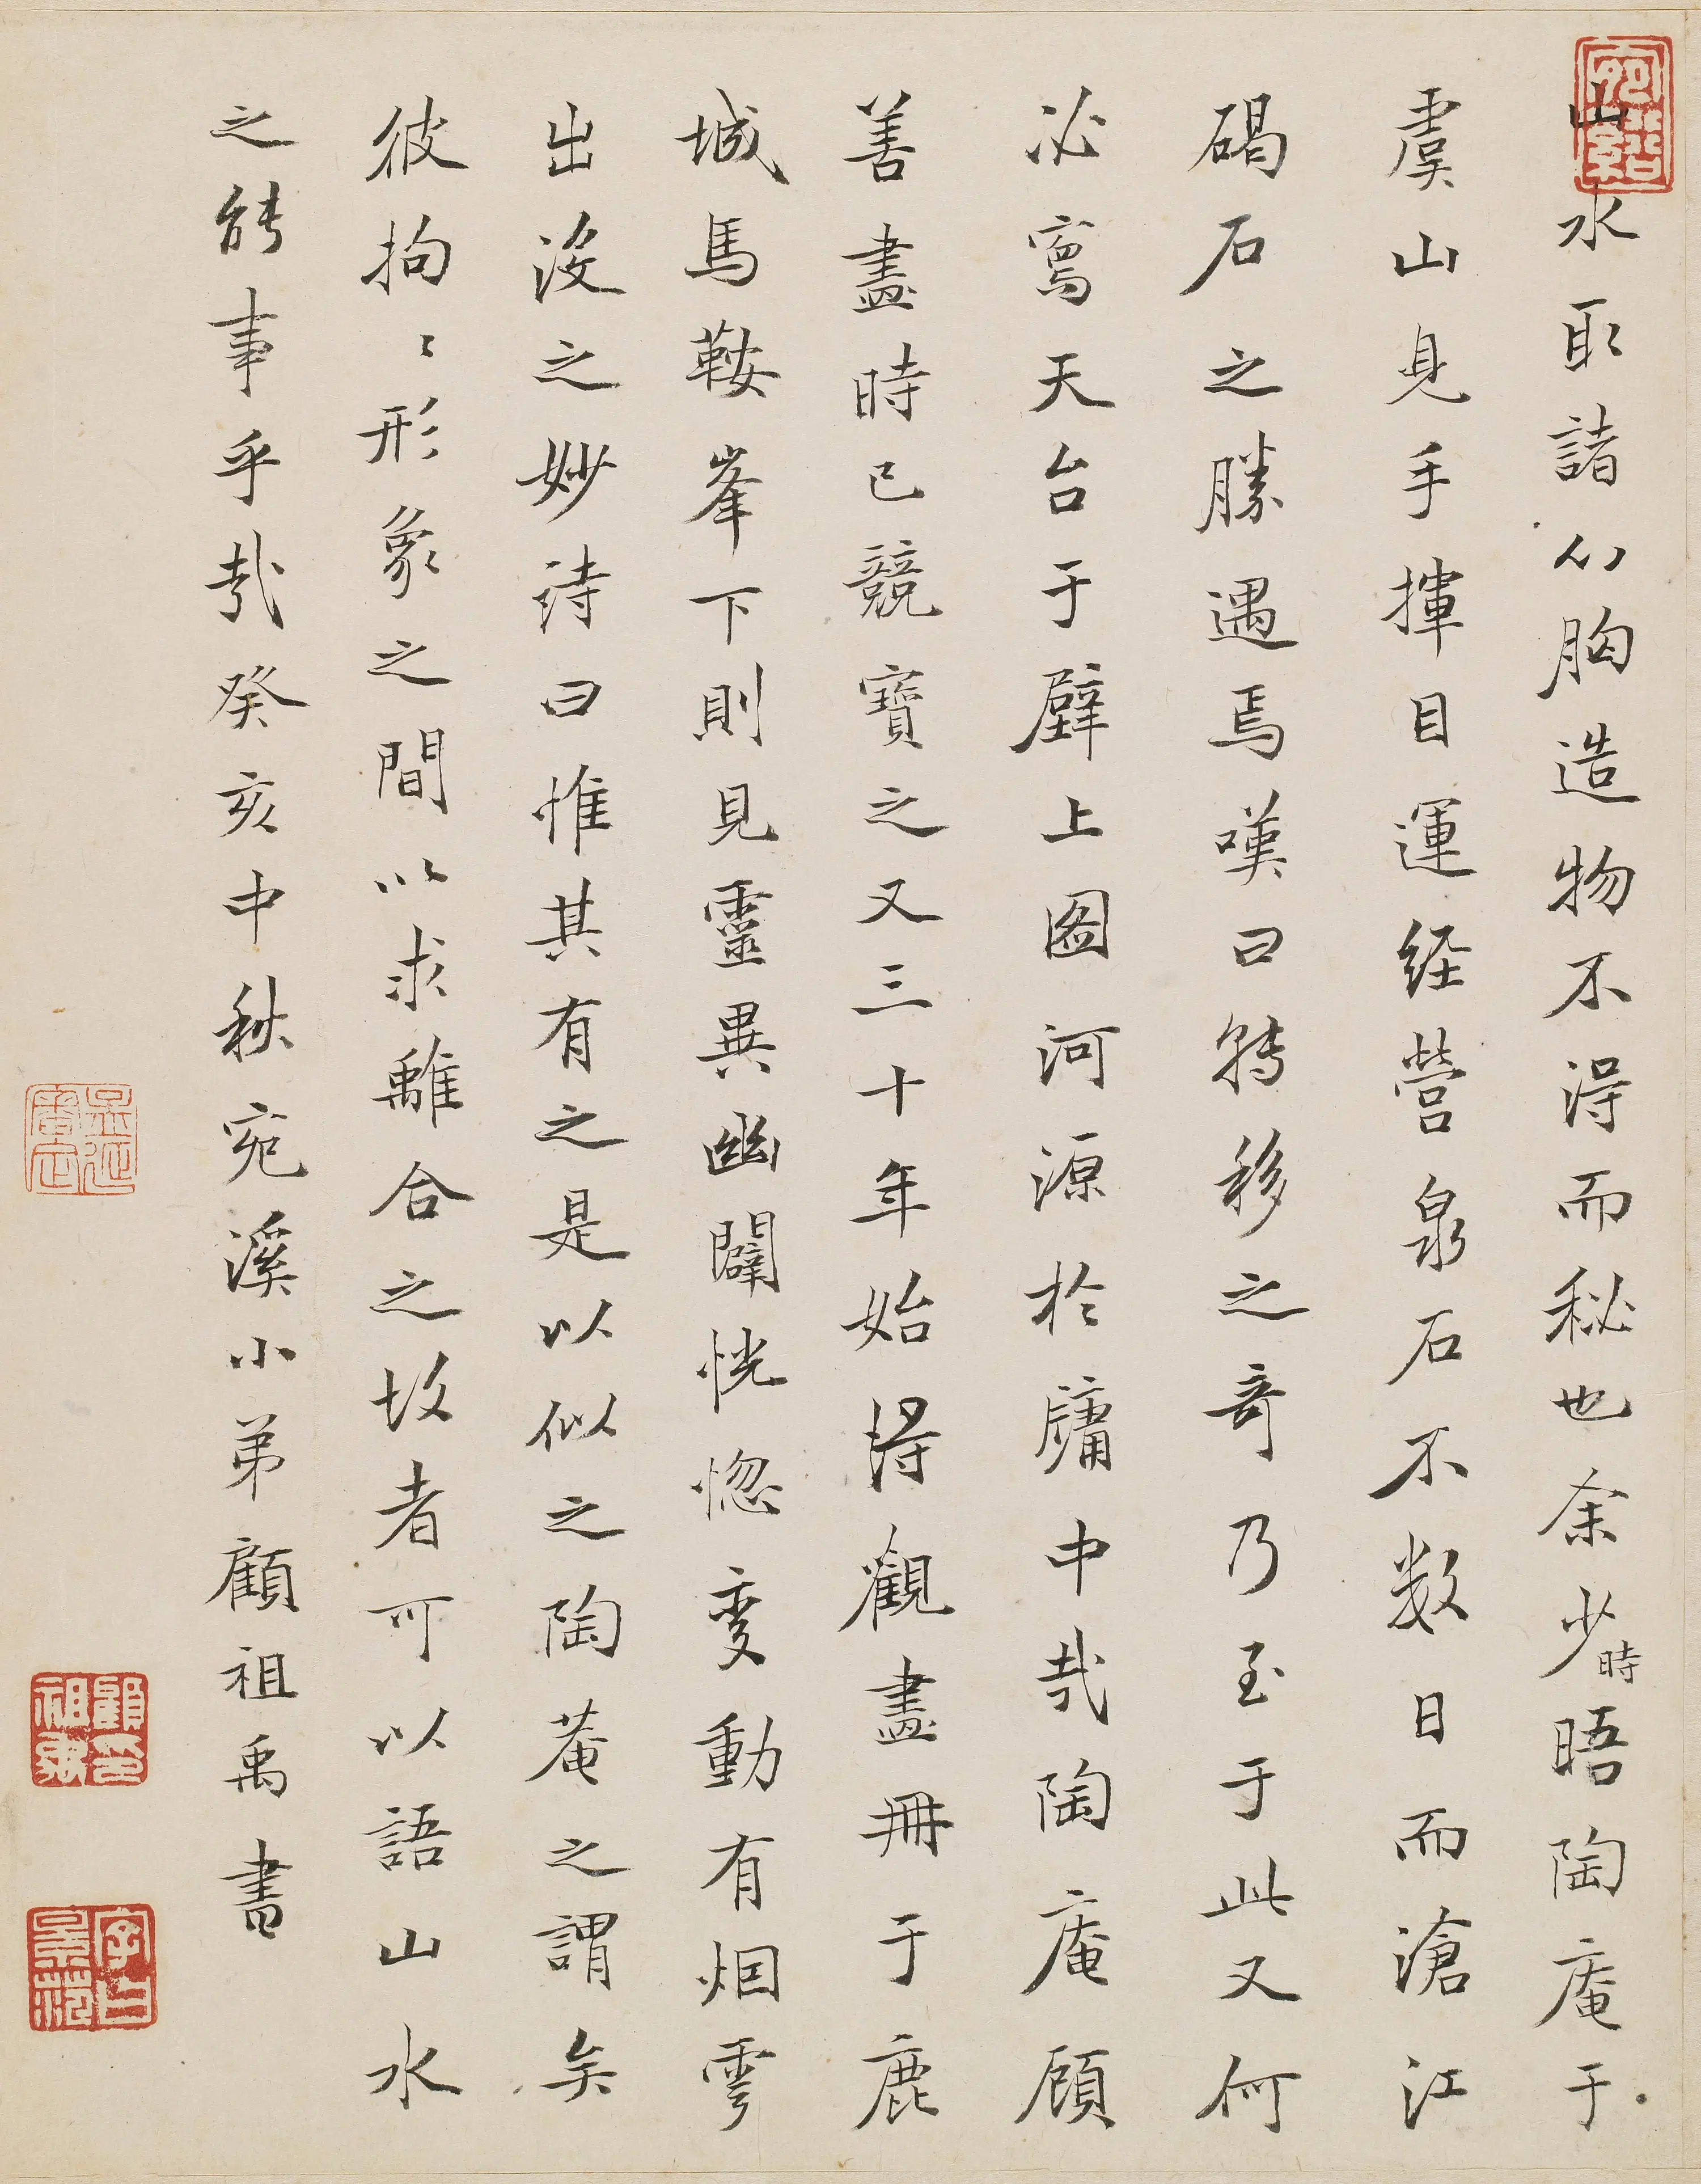 山水取諸心胸造物不得而秘也余少時晤陶庵于
虞山見手揮目運経營泉石不数日而滄江
碣石之勝遇焉嘆曰轉移之奇乃至于此又何
必寫天台于壁上圖河源於牖中哉陶庵顧
善盡時已競寶之又三十年始得觀畫冊于鹿
城馬鞍峯下則見靈異幽闢恍惚变動有烟雲
出沒之妙詩曰惟其有之是以似之陶菴之謂矣
彼拘〻形象之間以求離合之故者可以語山水
之能事乎哉癸亥中秋宛溪小弟顧祖禹書
顧祖禹印
字曰景范